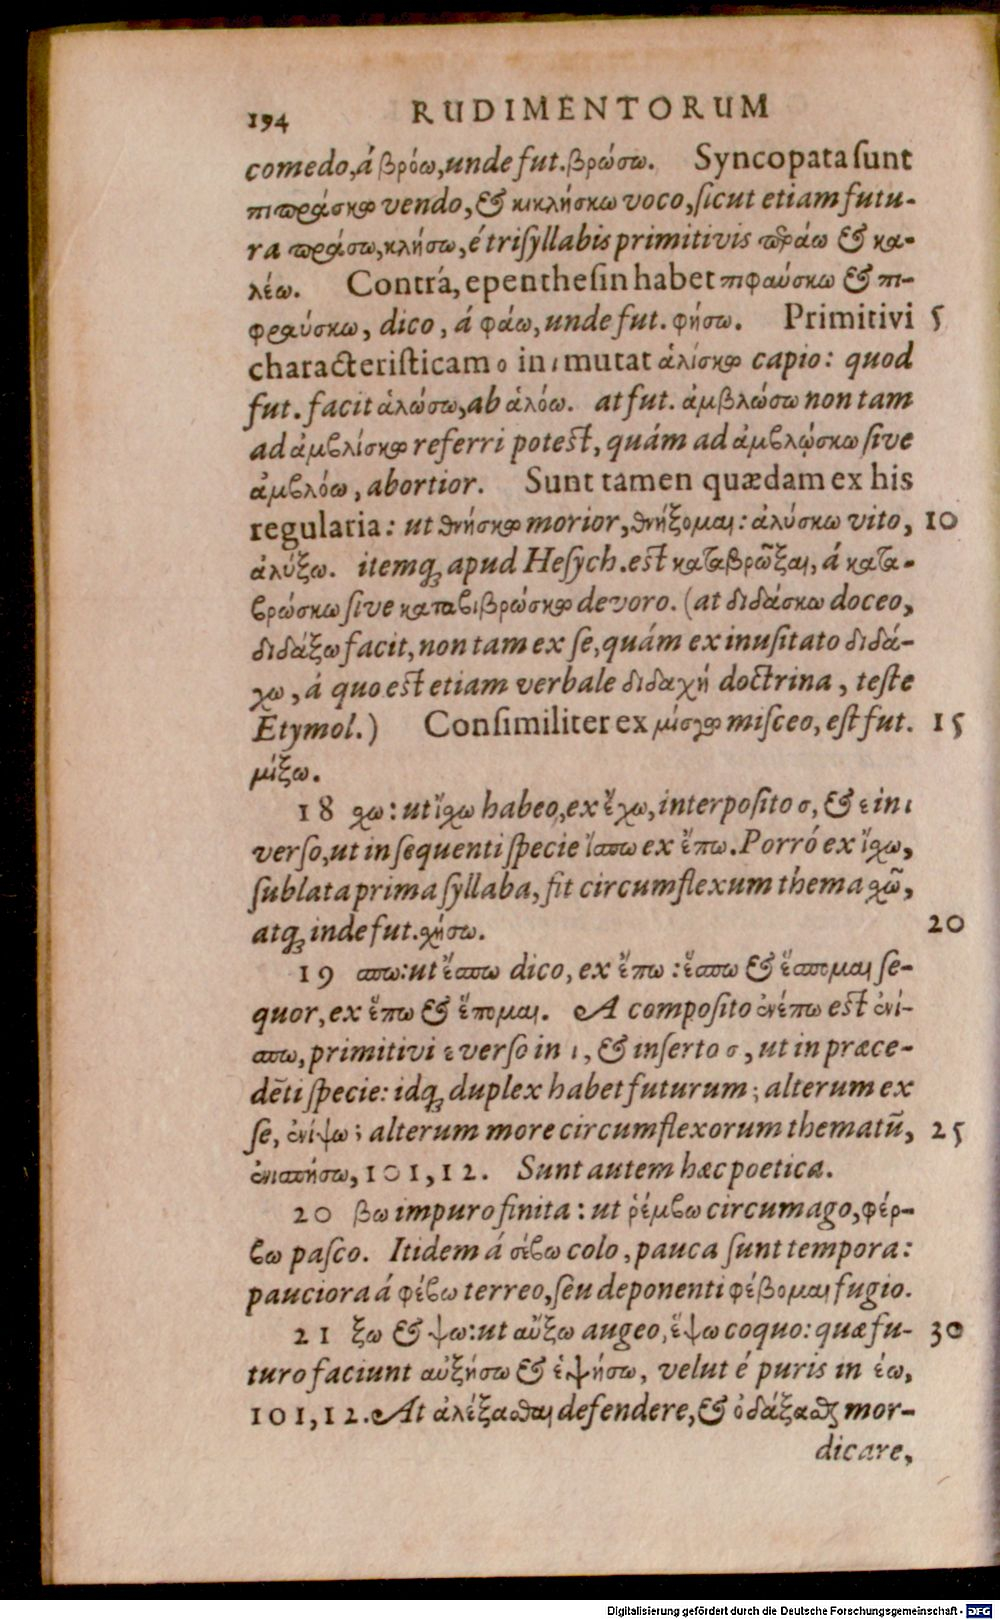 194 RUDIMENTORUM
comedo, á βρόω, unde fut. βρώσω. Syncopata ſunt
πιπράσκω vendo, & κικλήσκω voco, ſicut etiam futu-
ra πράσω, κλήσω, é triſyllabis primitivis περάω & κα-
λέω. Contrá, epentheſin habet πιφαύσκω & πι-
φραύσκω, dico, á φάω, unde fut. φήσω. Primitivi 5
characteriſticam ο in ι mutat ἁλίσκω capio: quod
fut. facit ἁλώσω, ab ἁλόω. at fut. ἀμβλώσω non tam
ad ἀμβλίσκω referri poteſt, quám ad ἀμβλώσκω ſive
ἀμβλόω, abortior. Sunt tamen quædam ex his
regularia: ut θνήσκω morior, θνήξομαι: ἀλύσκω vito, 10
ἀλύξω. itemq; apud Heſych. eſt καταβρῶξαι, á κατα-
βρώσκω ſive καταβιβρώσκω devoro. (at διδάσκω doceo,
διδάξω facit, non tam ex ſe, quám ex inuſitato διδά-
χω, á quo eſt etiam verbale διδαχή doctrina, teſte
Etymol.) Conſimiliter ex μίσγω miſceo, eſt fut. 15
μίξω.
18 σχω: ut ἴσχω habeo, ex ἔχω, interpoſito σ, & ε in ι
verſo, ut in ſequenti ſpecie ἴσπω ex ἔπω. Porró ex ἴσχω,
ſublata prima ſyllaba, fit circumflexum thema σχῶ,
atq; inde fut. σχήσω. 20
19 σπω: ut ἔσπω dico, ex ἔπω: ἕσπω & ἕσπομαι ſe-
quor, ex ἕπω & ἕπομαι. A compoſito ἐνέπω eſt ἐνί-
σπω, primitivi ε verſo in ι, & inſerto σ, ut in præce-
dēti ſpecie: idq; duplex habet futurum; alterum ex
ſe, ἐνίψω; alterum more circumflexorum thematū, 25
ἐνισπήσω, 101, 12. Sunt autem hæc poetica.
20 βω impuro finita: ut ῥέμβω circumago, φέρ-
βω paſco. Itidem á σέβω colo, pauca ſunt tempora:
pauciora á φέβω terreo, ſeu deponenti φέβομαι fugio.
21 ξω & ψω: ut αὔξω augeo, ἕψω coquo: quæ fu- 30
turo faciunt αὐξήσω & ἑψήσω, velut é puris in έω,
101, 12. At ἀλέξασθαι defendere, & ὀδάξασθαι mor-
dicare,
Digitalisierung gefördert durch die Deutsche Forschungsgemeinschaft - DFG